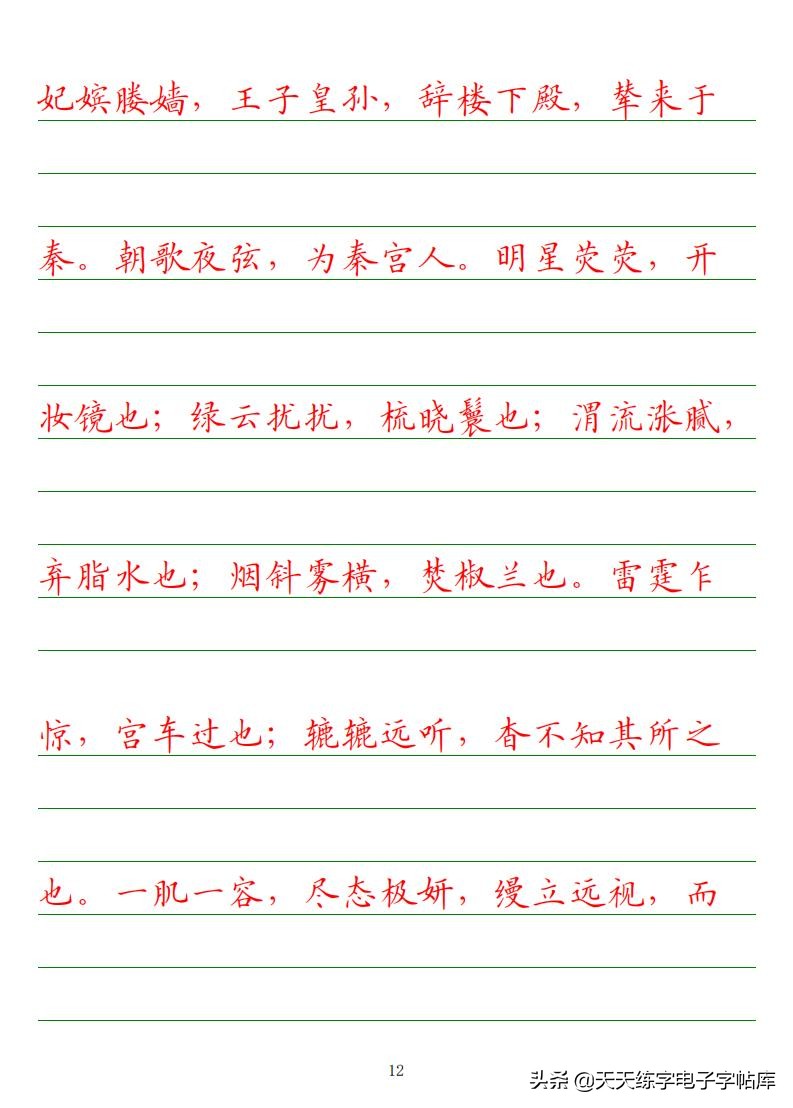 妃嫔媵嫱，王子皇孙，辞楼下殿，辇来于
秦。朝歌夜弦，为秦宫人。明星荧荧，开
妆镜也；绿云扰扰，梳晓鬟也；渭流涨腻，
弃脂水也；烟斜雾横，焚椒兰也。雷霆乍
惊，宫车过也；辘辘远听，杳不知其所之
也。一肌一容，尽态极妍，缦立远视，而
12
头条 @天天练字电子字帖库